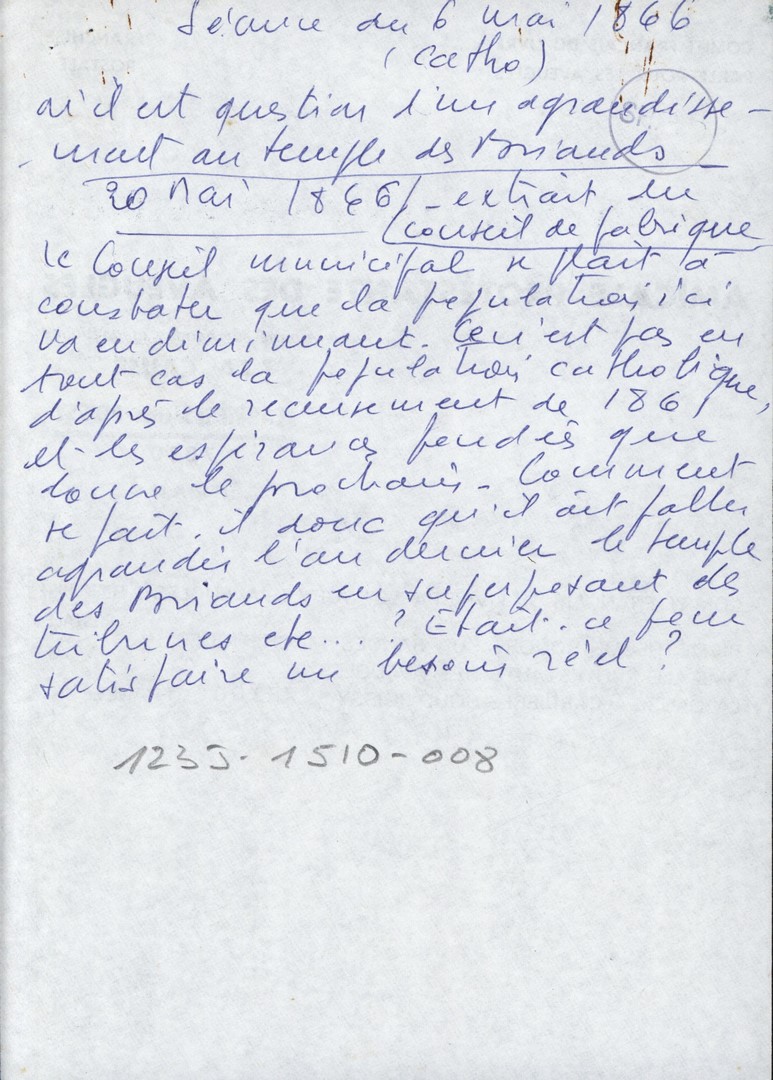 Séance du 6 mai 1866
(catho)
où il est question d'un agrandisse-
ment au temple des Briands
20 Mai 1866 - extrait du
conseil de fabrique
le Conseil municipal se plait à
constater que la population ici
va en diminuant. Ce n'est pas en
tout cas la population catholique,
d'après le recensement de 1861
et les espérances fondées que
donne le prochain - Comment
se fait-il donc qu'il ait fallu
agrandir l'an dernier le temple
des Briands en superposant des
tribunes etc....? Etait-ce pour
satisfaire un besoin réel?
123J-1510-008